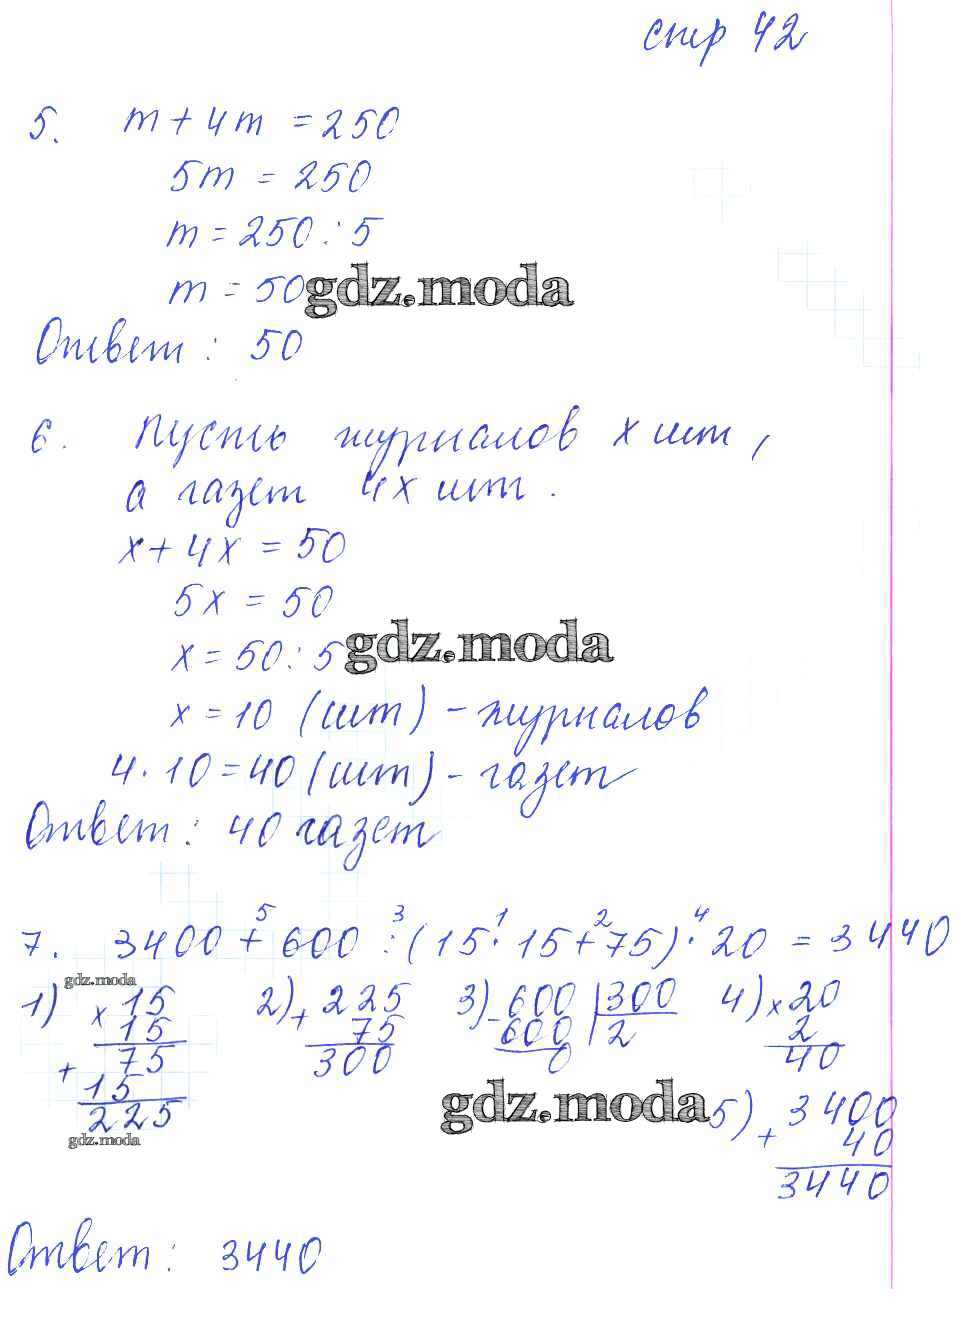 стр 42
5. m + 4m = 250
5m = 250
m = 250 : 5
m = 50
gdz.moda
Ответ : 50
6. Пусть журналов x шт,
а газет 4x шт.
x + 4x = 50
5x = 50
x = 50 : 5
gdz.moda
x = 10 (шт) - журналов
4 · 10 = 40 (шт) - газет
Ответ : 40 газет
5 3 1 2 4
7. 3400 + 600 : (15 · 15 + 75) · 20 = 3440
gdz.moda
1) × 15
15
75
+ 15
225
gdz.moda
2) + 225
75
300
3) - 600 | 300
600 | 2
0
4) × 20
2
40
gdz.moda
5) + 3400
40
3440
Ответ : 3440